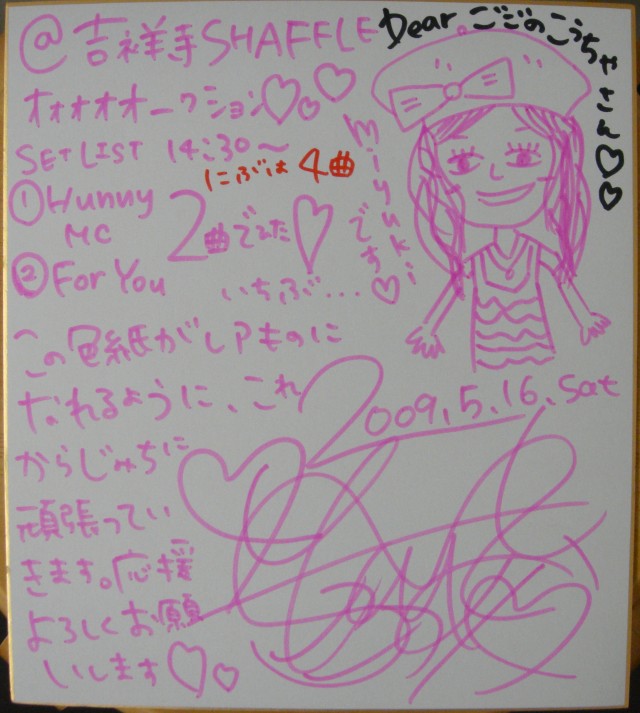 @吉祥寺SHAFFLE
Dear ごごのこうちゃさん♡♡
オオオオオークション♡♡♡
SET LIST 14:30～
にぶは4曲
①Hunny
MC
2曲でした♡
②For You
いちぶ...
miyukiです♡
この色紙がレアものに
なれるように、これ
からじみちに
頑張ってい
きます。応援
よろしくお願
いします♡♡
2009.5.16.Sat